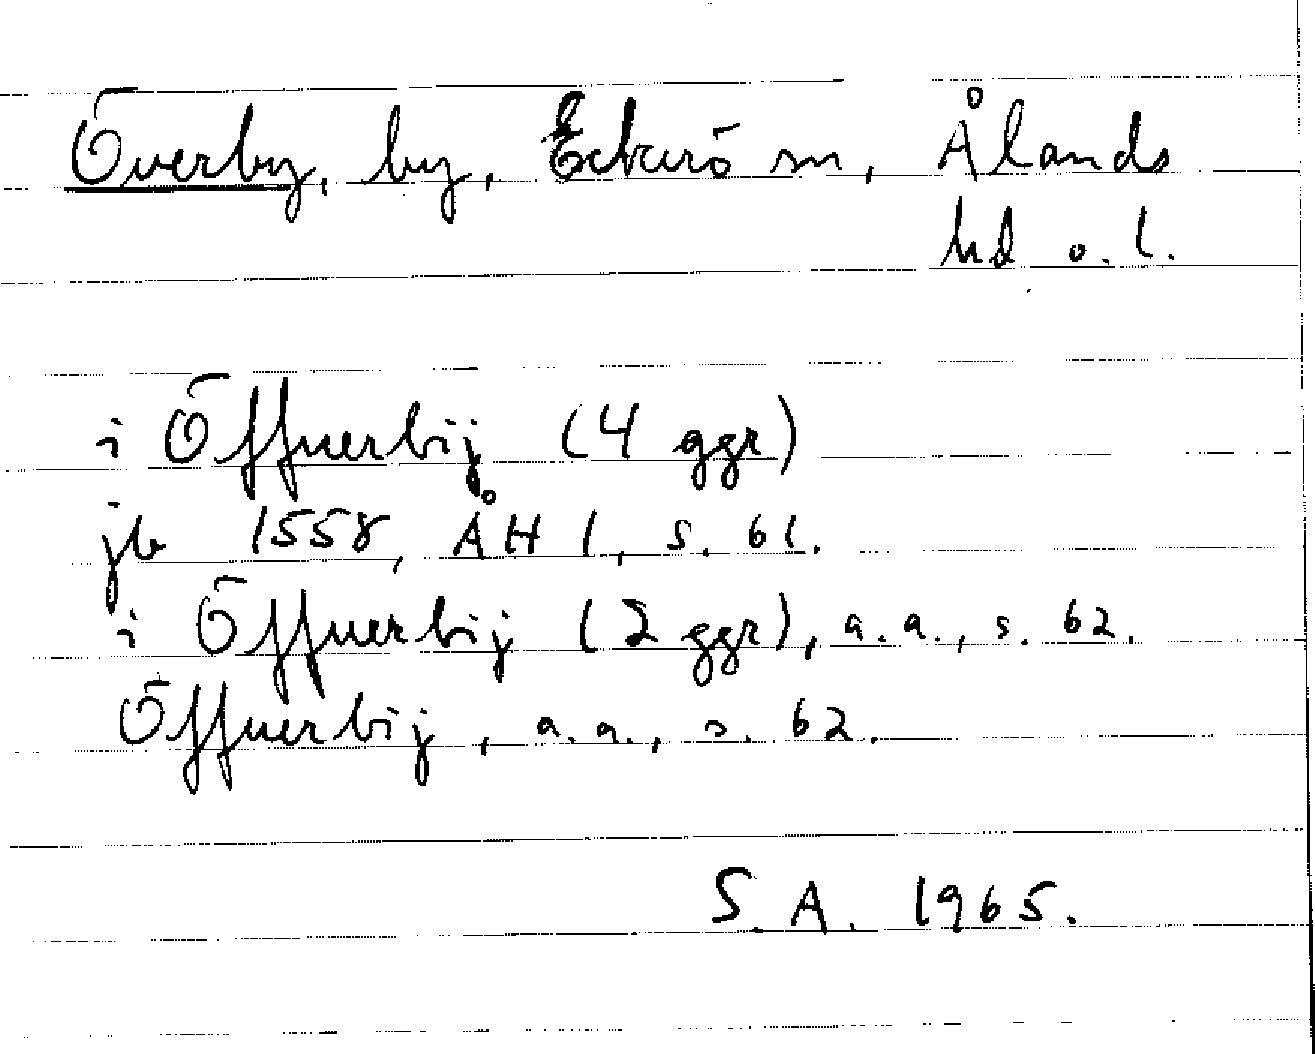 Överby, by, Eckerö sn, Ålands
hd o. l.
i Öffuerbij (4 ggr)
jb 1558, ÅH 1, s. 61.
i Öffuerbij (2 ggr), a.a., s. 62.
Öffuerbij, a.a., s. 62.
S. A. 1965.